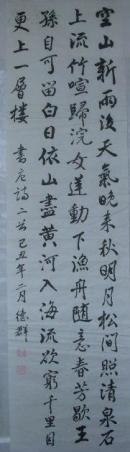 空山新雨後天氣晚来秋明月松間照清泉石
上流竹喧歸浣女蓮動下漁舟隨意春芳歇王
孫自可留白日依山盡黄河入海流欲窮千里目
更上一層樓 書唐詩二首己丑年二月德群